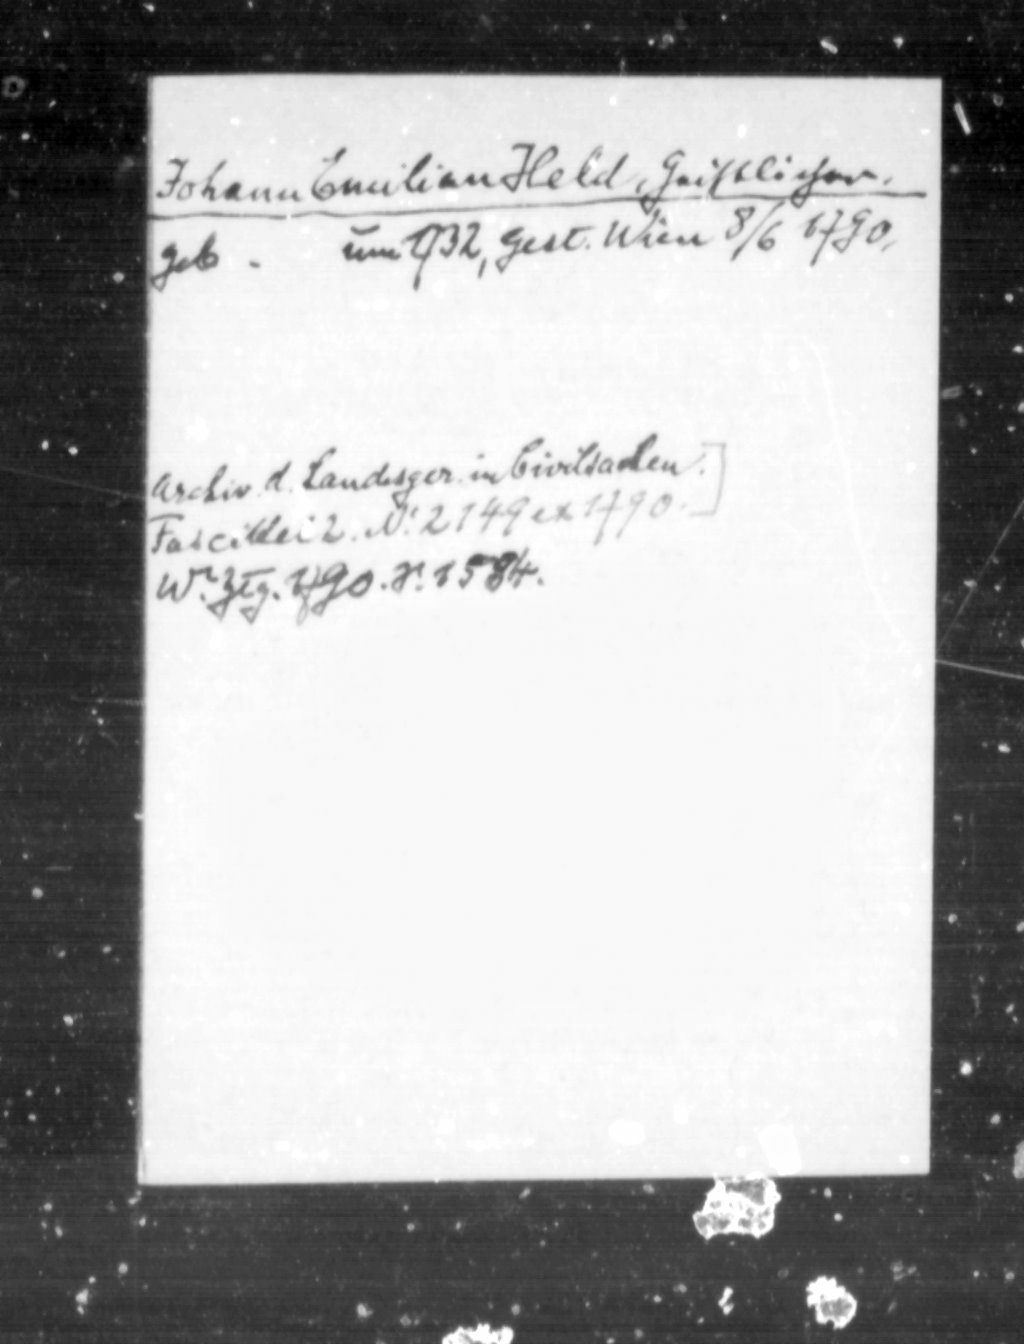 Johann Emilian Held, Geistlicher.
geb. um 1732, gest. Wien 8/6 1790,
Archiv d. Landesger. in Civilsachen.]
Fascikel 2. Nr. 2149 ex 1790.
Wr. Ztg. 1790. S. 1584.